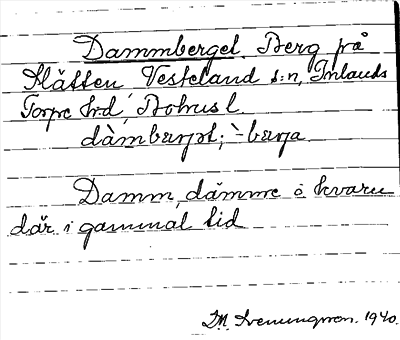 Dammberget. Berg på
Slätten Vesteland s:n, Inlands
Torpe hrd, Bohus l.
dàmbærjət; ~bærja.
Damm, dämme å kvarn
där i gammal tid
1940.